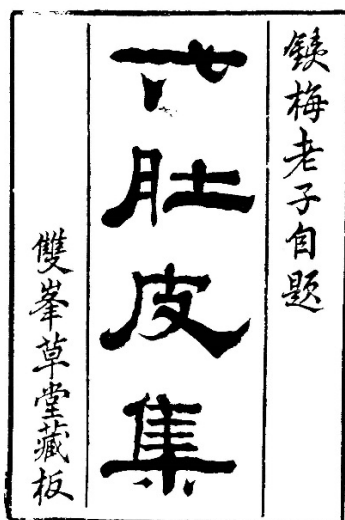 銕梅老子自題
一肚皮集
雙峯草堂藏板